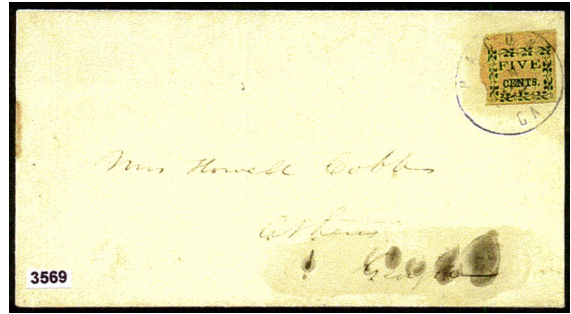 MACON
FIVE
CENTS.
GA
Mrs Howell Cobb
Athens
Georgia
3569